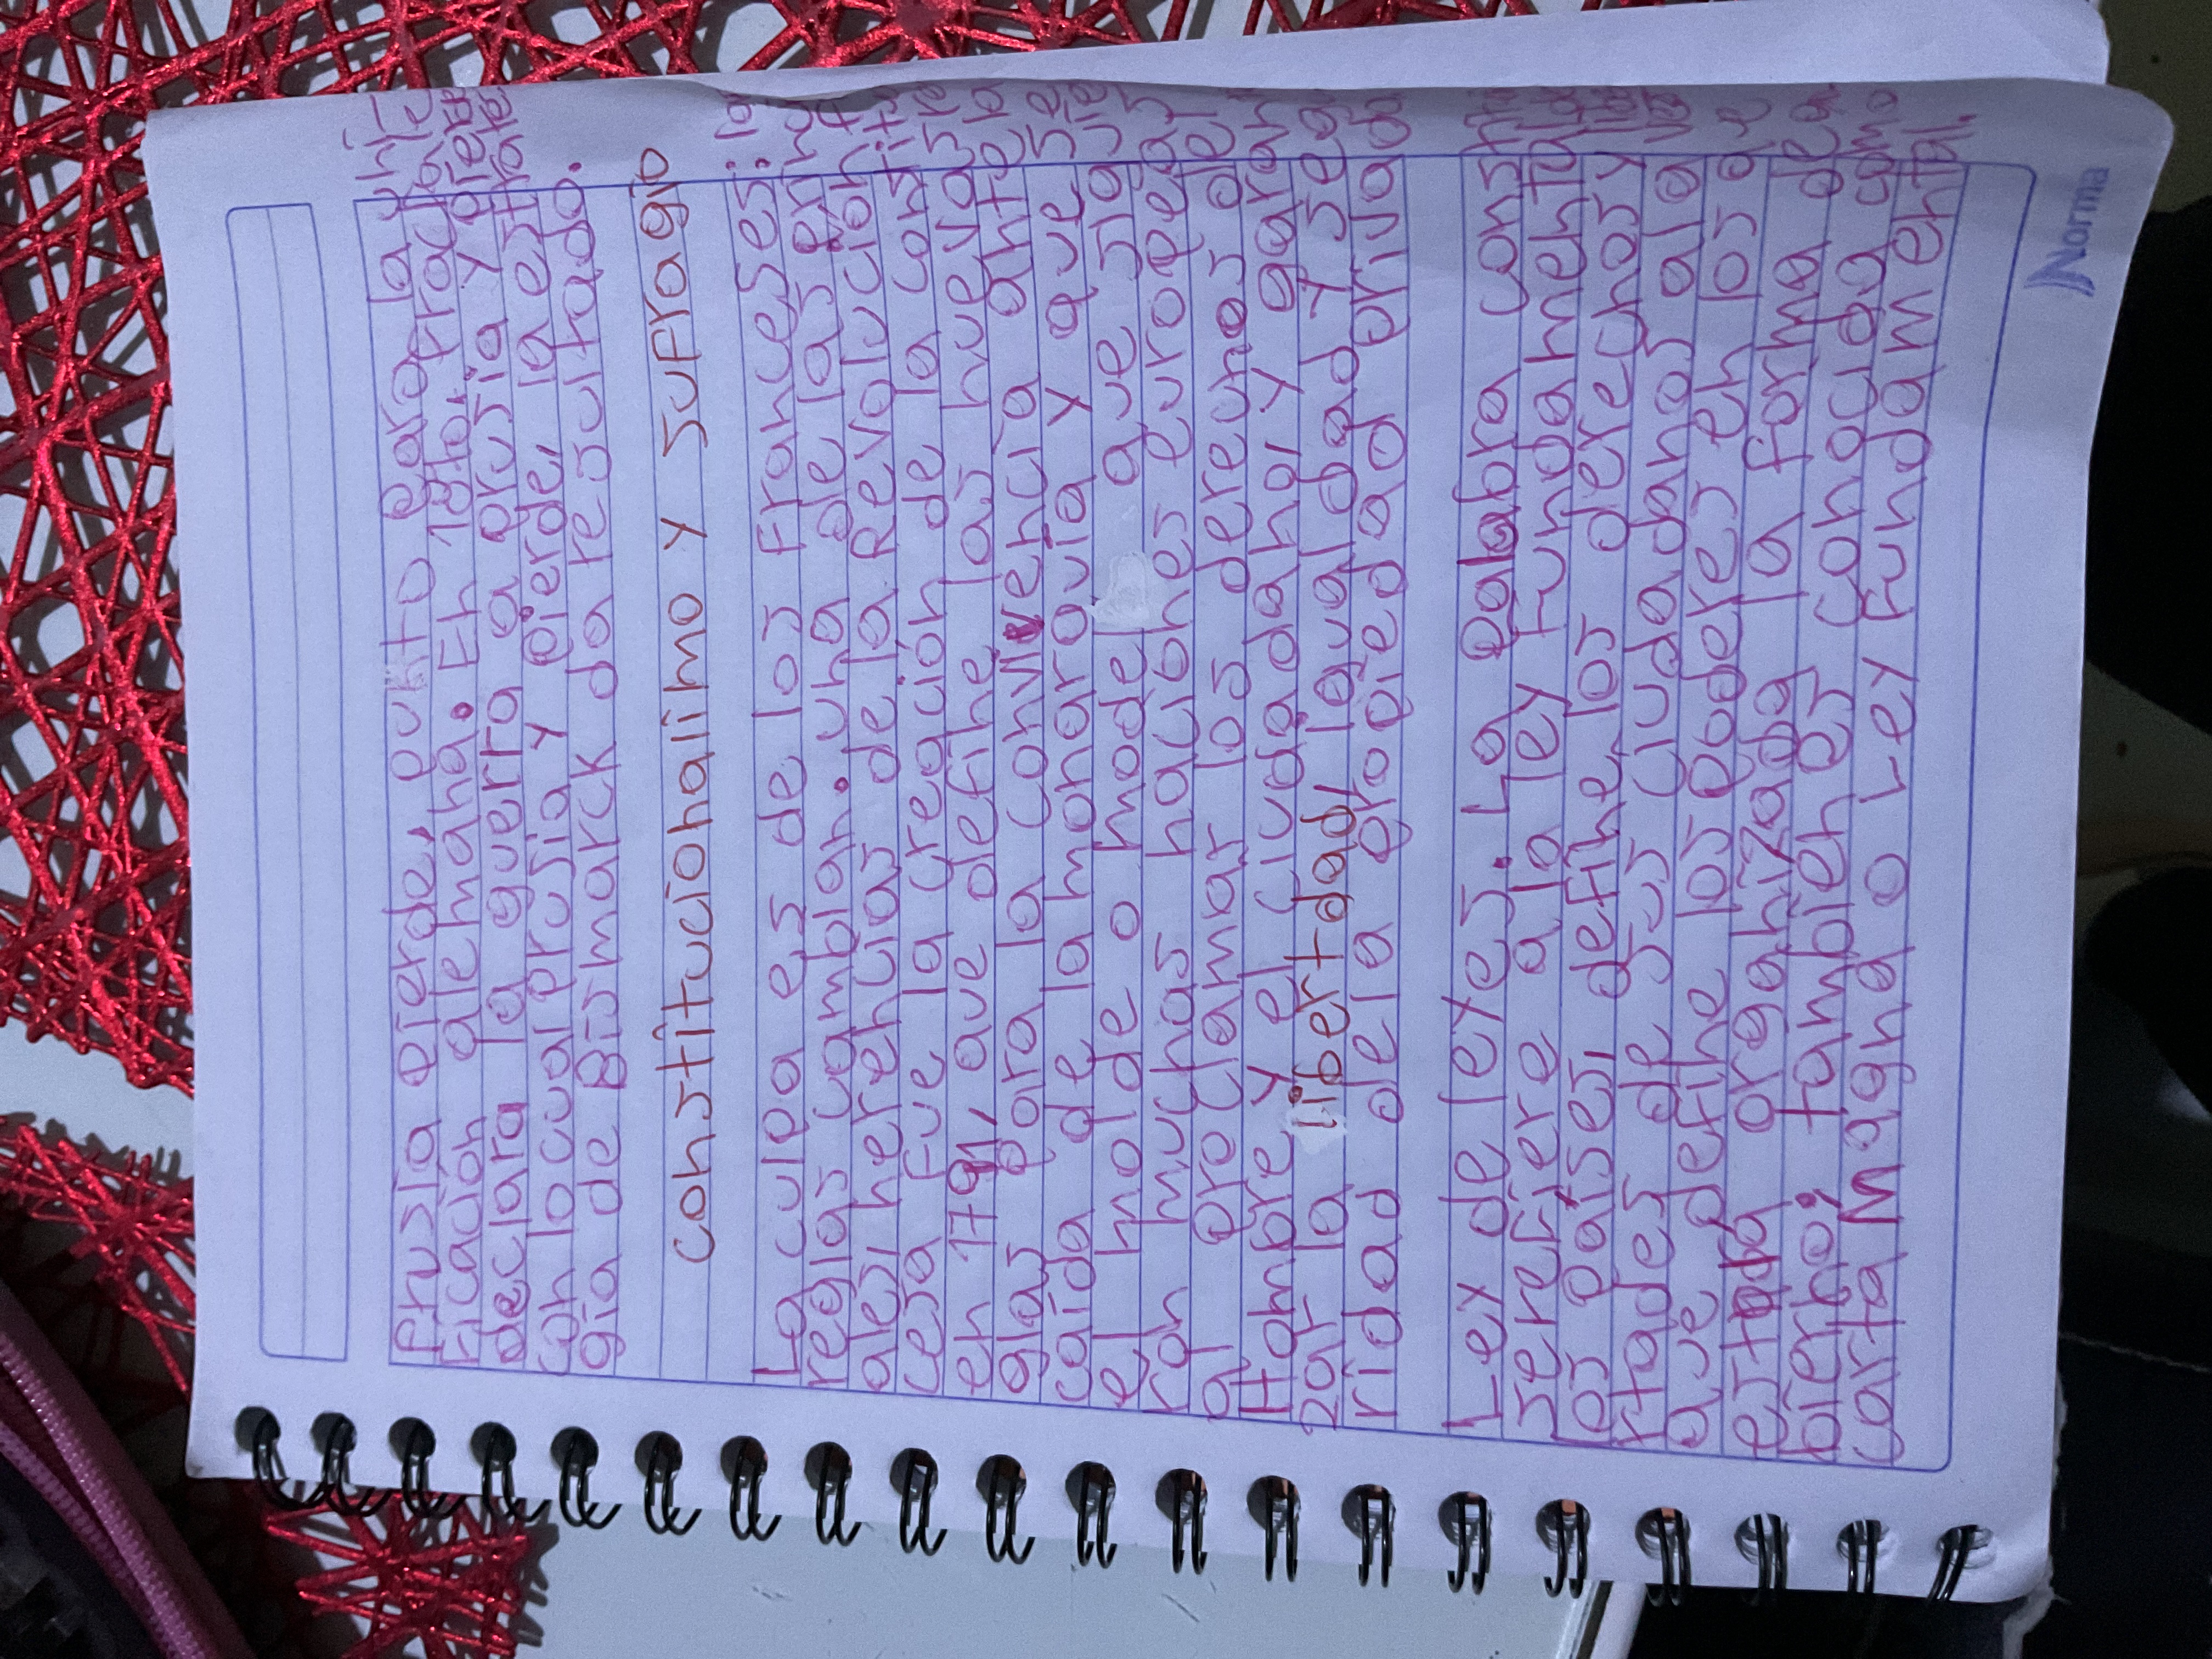 Prusia pierde, punto para la uni
ficación alemana. En 1870, Franc
declara la guerra a prusia y pie
con lo cual prusia y pierde, la estrate
gia de Bismarck da resultado.
constitucionalimo y sufragio
La culpa es de los franceses: la
reglas cambian. una de las prin
ales herencias de la Revolución
cesa fue la creación de la constit
en 1791, que define las nuevas re
glas para la convivencia ante la
caída de la monarquía y que si
el molde o model que sig
ron muchas naciones europeas
al proclamar los derechos del
Hombre y el ciudadano, y garan
zar la libertad, igualdad y seg
ridad dela propiedad privada
Lex de lexes. La palabra const
serefiere a la ley fundamental
los países, define los derechos y
rtades de sus ciudadanos ala v
que define los poderes en los que
estada organizaba la forma de
bierno; tambien es conocida como
carta Magna o Ley fundamental.
Norma